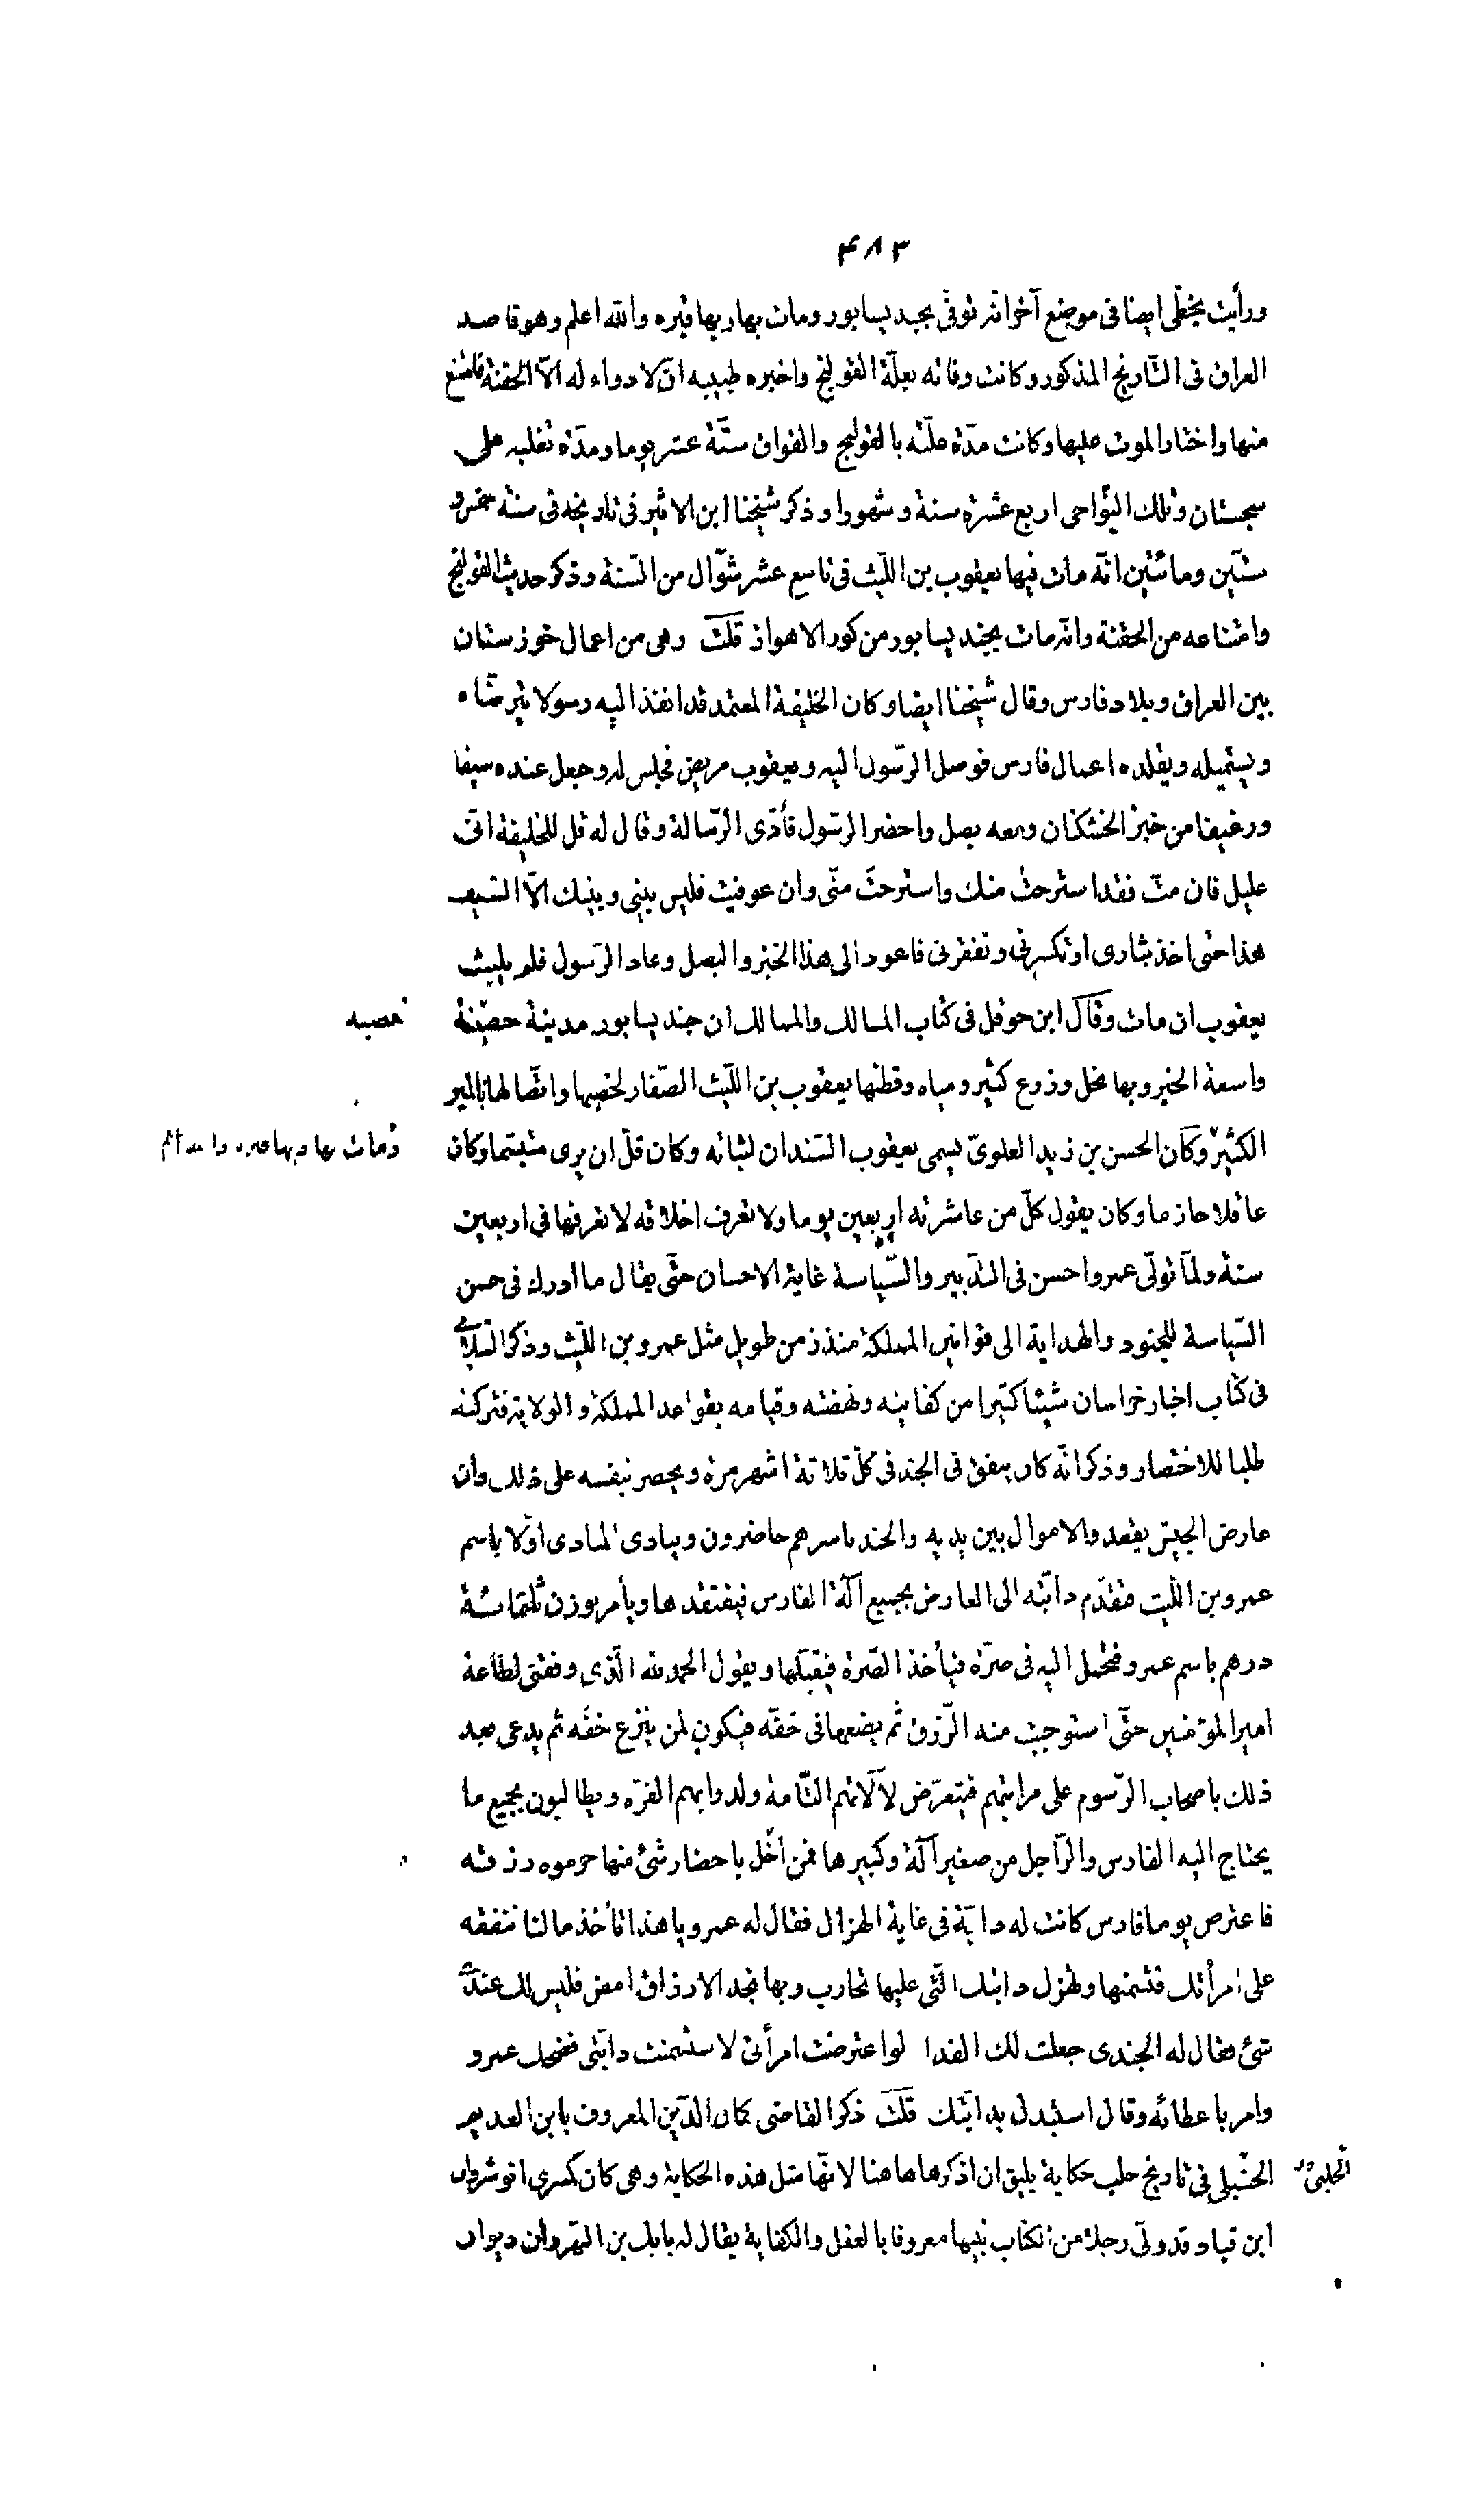 ٤٨٣
ورأيت بخطى ايضا فى موضع آخر انّه توفّى بجند يسابور ومات بها وبها قبره والله اعلم وهو قاصد
العراق فى التّاريخ المذكور وكانت وفاته بعلّة القولنج واخبره طبيبه ان لا دواء له الّا الحقنة فامتنع
منها واختار الموت عليها وكانت مدّة علّته بالقولنج والفواق ستّة عشر يوما ومدّة تغلبه على
سجستان وتلك النّواحى اربع عشرة سنة وشهورا وذكر شيخنا ابن الاثير فى تاريخه فى سنة خمس و
ستّين ومائتين انّه مات فيها يعقوب بن اللّيث فى تاسع عشر شوّال من السّنة وذكر حديث القولنج
وامتناعه من الحقنة وانّه مات بجند يسابور من كور الاهواز قلت وهى من اعمال خوزستان
بين العراق وبلاد فارس وقال شيخنا ايضا وكان الخليفة المعتمد قد انفذ اليه رسولا يترضّاه
ويستميله ويقلده اعمال فارس فوصل الرّسول اليه ويعقوب مريض فجلس له وجعل عنده سيفا
ورغيفا من خبز الخشكنان ومعه بصل واحضر الرسول فأدّى الرّسالة وقال له قل للخليفة انّى
عليل فان متّ فقد استرحتُ منك واسترحتَ منّى وان عوفيت فليس بينى وبينك الّا السّيف
هذا حتى اخذ بثارى او تكسرنى وتفقرنى فاعود الى هذا الخبز والبصل وعاد الرّسول فلم يلبث
يعقوب ان مات وقال ابن حوقل فى كتاب المسالك والممالك ان جند يسابور مدينة حصينة
خصبه
واسعة الخير وبها نخل وزروع كثير ومياه وقطنها يعقوب بن اللّيث الصّفار لخصبها واتّصالها بالمير
الكثيرة وكان الحسن بن زيد العلوىّ يسمى يعقوب السّندان لثباته وكان قلّ ان يرى متبسّما وكان
ومات بها وبها قبره والله أعلم
عاقلا حازما وكان يقول كلّ من عاشرته اربعين يوما ولا تعرف اخلاقه لا تعرفها فى اربعين
سنة ولمّا تولّى عمرو احسن فى التّدبير والسّياسة غاية الاحسان حتّى يقال ما ادرك فى حسن
السّياسة للجنود والهداية الى قوانين المملكة منذ زمن طويل مثل عمرو بن اللّيث وذكر السّلامى
فى كتاب اخبار خراسان شيئا كثيرا من كفايته ونهضته وقيامه بقواعد المملكة والولاية فتركته
طلبا للاختصار وذكر انّه كان ينفق فى الجند فى كلّ ثلاثة اشهر مرة ويحضر بنفسه على ذلك وان
عارض الجيش يقعد والاموال بين يديه والجند باسرهم حاضرون وينادى المنادى اوّلا باسم
عمرو بن اللّيث فتقدّم دابّته الى العارض بجميع آلة الفارس فيفتقدها ويأمر بوزن ثلثمائة
درهم باسم عمرو فتحمل اليه فى صرّة فيأخذ الصّرة فيقبّلها ويقول الحمد لله الّذى وفقنى لطاعة
امير المؤمنين حتّى استوجبت منه الرّزق ثم يضعها فى خفّه فيكون لمن ينزع خفّه ثم يدعى بعد
ذلك باصحاب الرّسوم على مراتبهم فيتعرّض لآلاتهم التّامة ولدوابهم الفرّه ويطالبون بجميع ما
يحتاج اليه الفارس والرّاجل من صغير آلة وكبيرها فمن أخّل باحضار شئ منها حرموه رزقه
فاعترض يوما فارس كانت له دابّة فى غاية الهزال فقال له عمرو يا هذا تأخذ مالنا تنفقه
على امرأتك فتسمنها وتهزل دابتك الّتى عليها تحارب وبها تجد الارزاق امض فليس لك عندى
شئ فقال له الجندى جعلت لك الفدا لو اعترضت امرأتى لاستسمنت دابّتى فضحك عمرو
وامر باعطائه وقال استبدل بدابّتك قلت ذكر القاضى كمال الدّين المعروف بابن العديم
الحلبى
الحنبلى فى تاريخ حلب حكاية يليق ان اذكرها هاهنا لانّها مثل هذه الحكاية وهى كان كسرى انوشروان
ابن قباد قد ولّى رجلا من الكتاب نبيها معروفا بالعقل والكفاية يقال له بابك بن النهروان ديوان